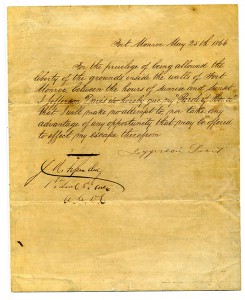 Fort Monroe May 25th, 1866
For the privilege of being allowed the
liberty of the grounds inside the walls of Fort
Monroe between the hours of sunrise and sunset
I Jefferson Davis do hereby give my Parole of Honor
that I will make no attempt to, nor take any
advantage of any opportunity that may be offered
to effect my escape therefrom
Jefferson Davis